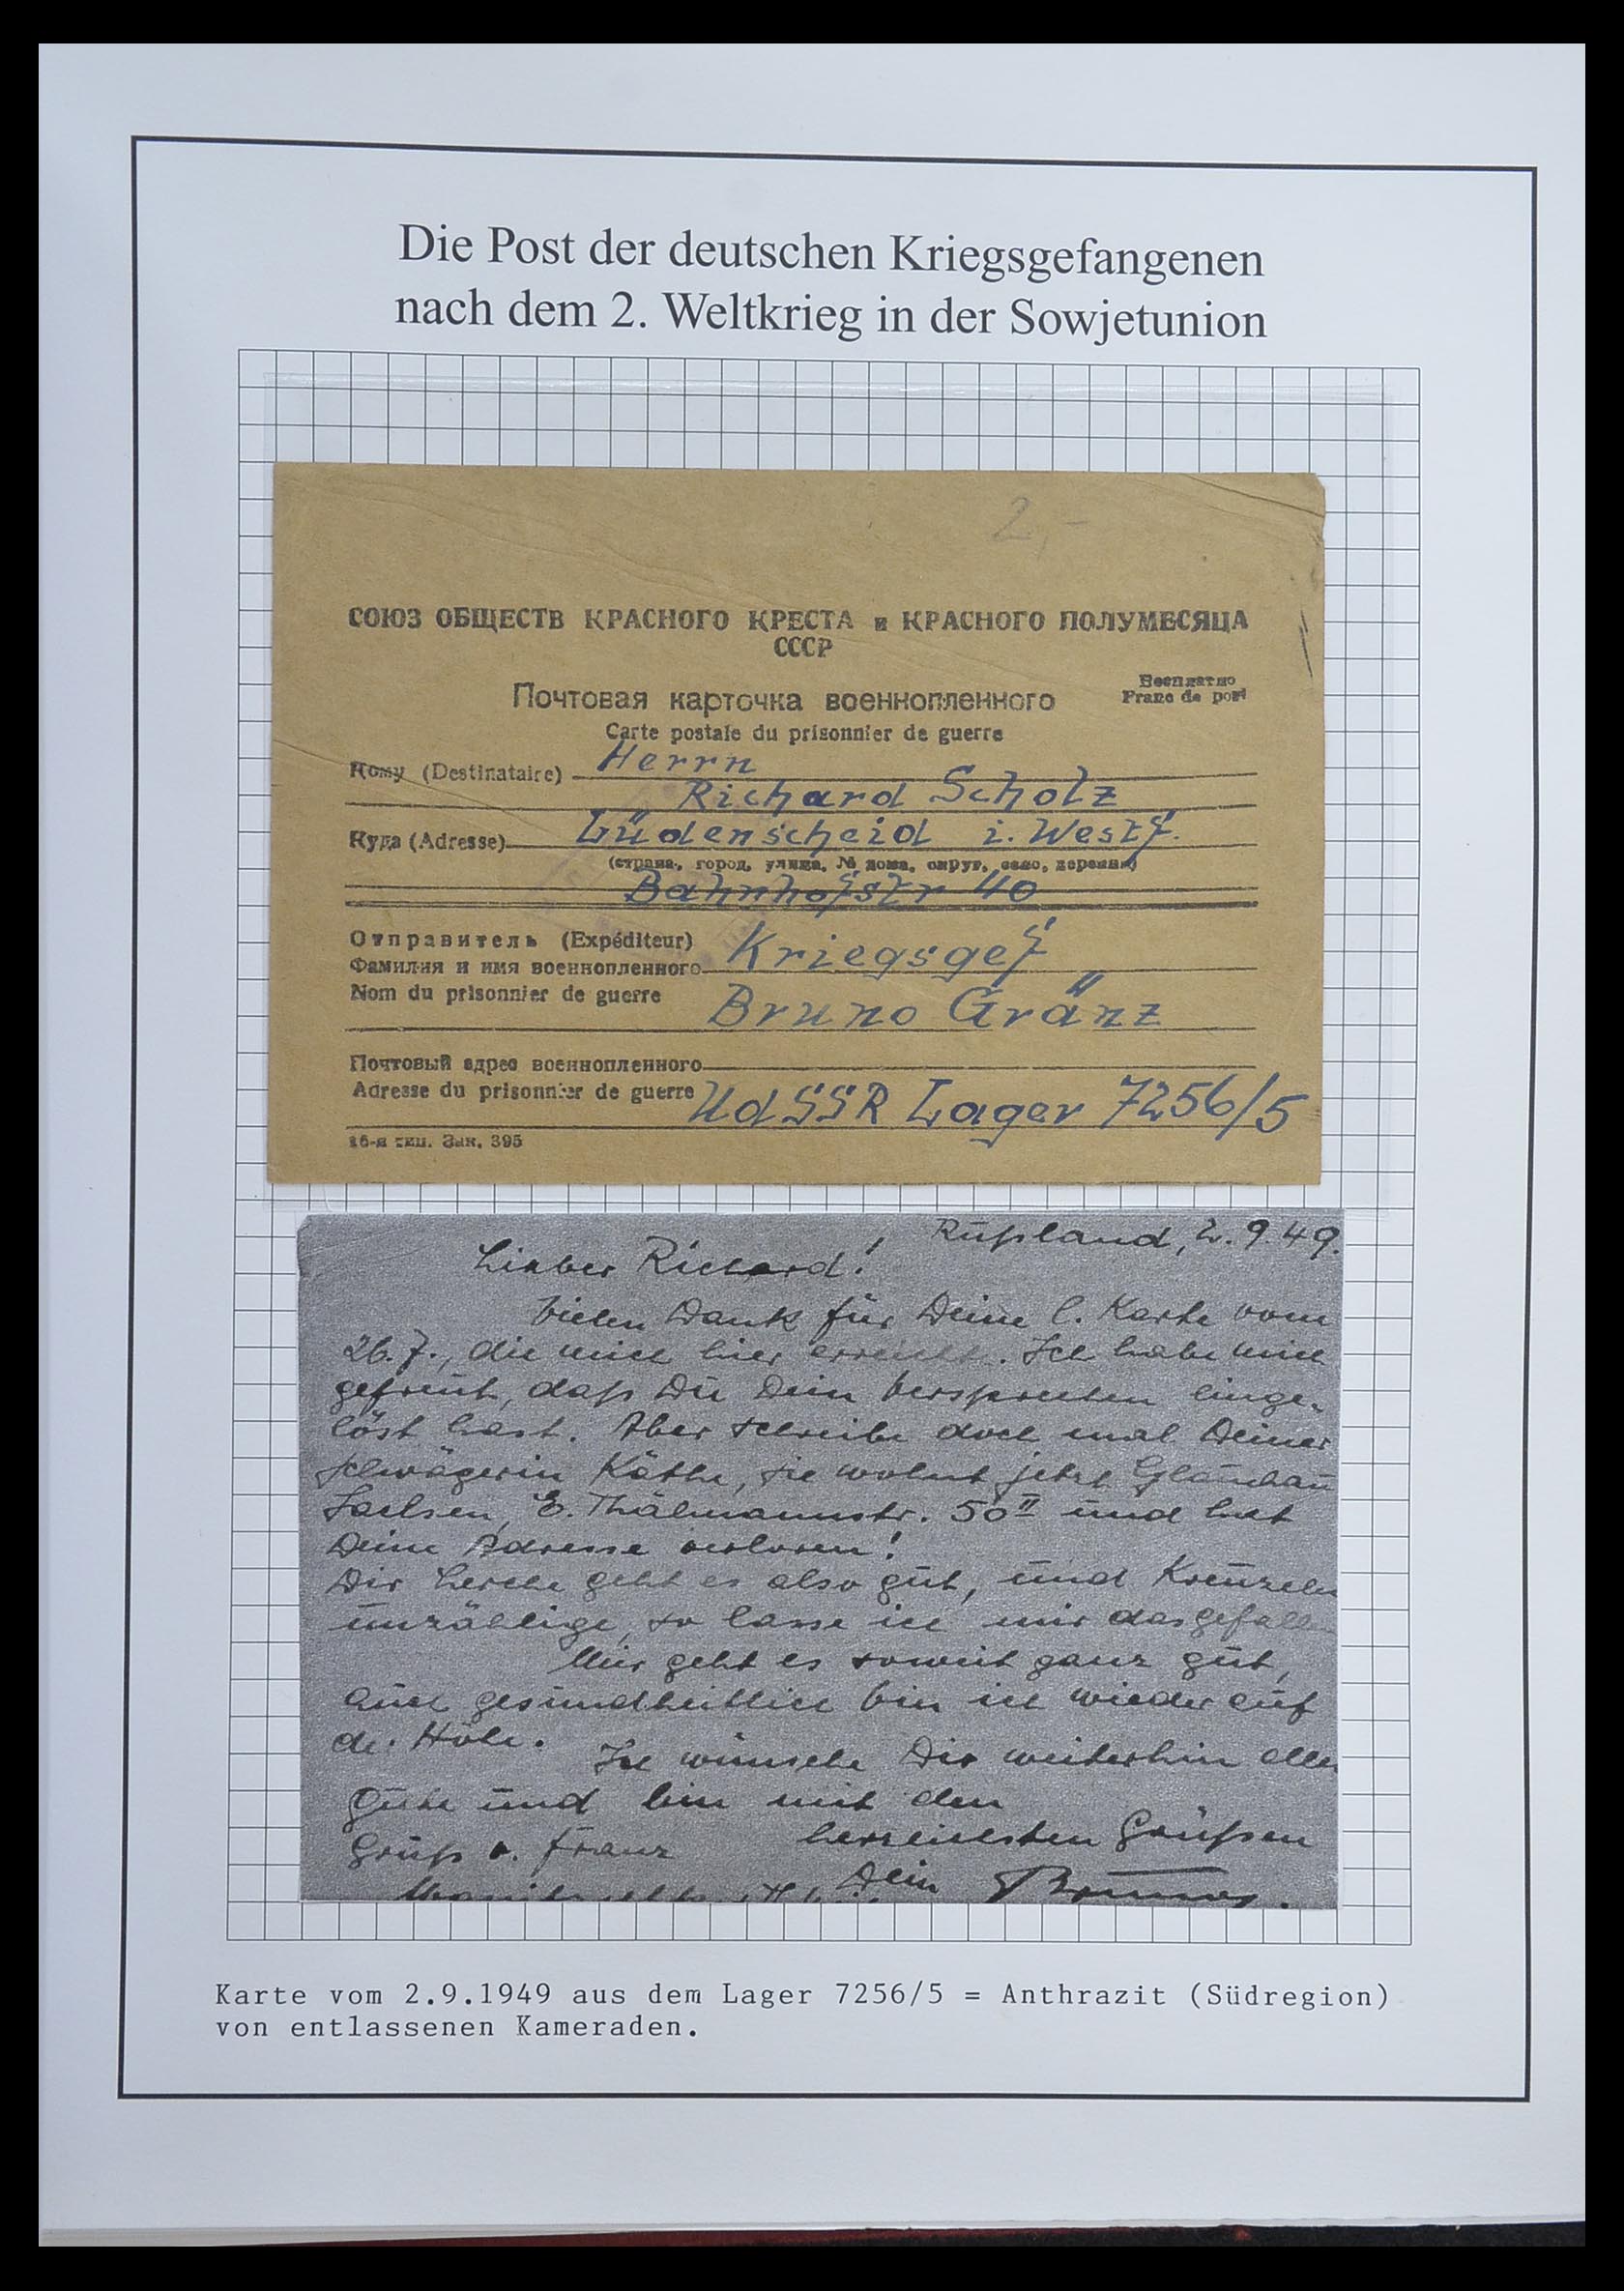 Die Post der deutschen Kriegsgefangenen
nach dem 2. Weltkrieg in der Sowjetunion
2,-
СОЮЗ ОБЩЕСТВ КРАСНОГО КРЕСТА и КРАСНОГО ПОЛУМЕСЯЦА
СССР
Бесплатно
Franc de port
Почтовая карточка военнопленного
Carte postale du prisonnier de guerre
Кому (Destinataire) Herrn
Richard Scholz
Куда (Adresse) Lüdenscheid i. Westf.
(страна, город, улица, № дома, округ, село, деревня)
Bahnhofstr 40
Отправитель (Expéditeur)
Фамилия и имя военнопленного Kriegsgef
Nom du prisonnier de guerre Bruno Gränz
Почтовый адрес военнопленного
Adresse du prisonnier de guerre UdSSR Lager 7256/5
16-я тип. Зак. 395
Rußland, 2.9.49.
Lieber Richard!
Vielen Dank für Deine l. Karte vom
26.7., die mich hier erreicht. Ich habe mich
gefreut, daß Du Dein Versprechen einge-
löst hast. Aber schreibe doch mal Deiner
Schwägerin Käthe, sie wohnt jetzt Glauchau
Sachsen, E. Thälmannstr. 50 II und hat
Deine Adresse verloren!
Dir geht es also gut, und
unzählige, so lasse ich mir das gefallen
Mir geht es soweit ganz gut,
auch gesundheitlich bin ich wieder auf
der Höhe.
Ich wünsche Dir weiterhin alles
Gute und bin mit den
herzlichsten Grüßen
Gruß v. Franz
Dein Bruno.
Karte vom 2.9.1949 aus dem Lager 7256/5 = Anthrazit (Südregion)
von entlassenen Kameraden.